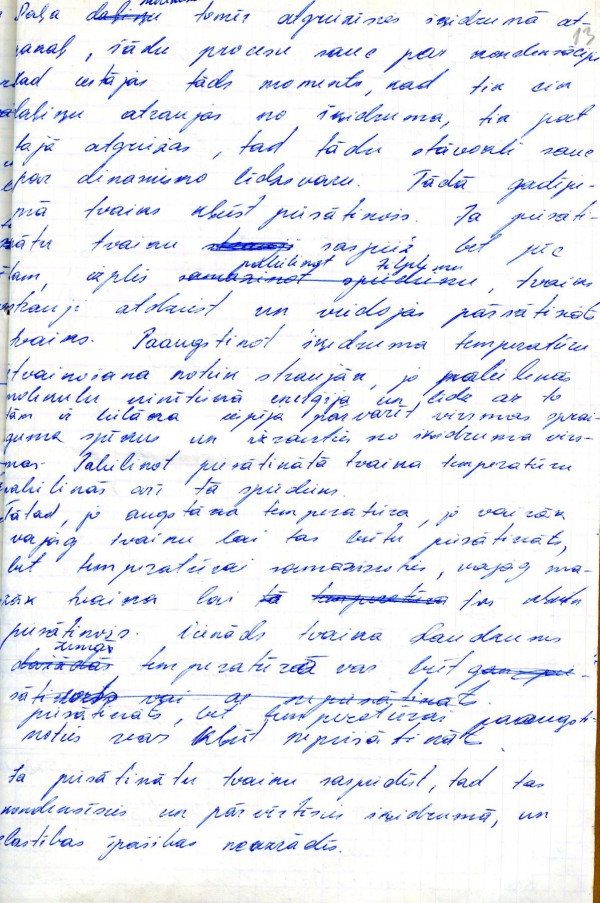 Daļa molekulu tomēr atgriežas šķidrumā at-
13
pakaļ, šādu procesu sauc par kondensāciju
kad iestājas tāds moments, kad tik cik
daļiņu atraujas no šķidruma, tik pat
tajā atgriežas, tad tādu stāvokli sauc
par dinamisko līdzsvaru. Tādā gadīju-
mā tvaiks kļūst piesātināts. Ja piesāti-
nātu tvaiku saspiež bet pēc
tam, izplēš palielinot tilpumu, tvaiks
strauji atdziest un veidojas pārsātināts
tvaiks. Paaugstinot šķidruma temperatūru
iztvaikošana notiek straujāk, jo palielinās
molekulu kinētiskā enerģija un līdz ar to
tām ir lielāka iespēja pārvarēt virsmas sprai-
guma spēkus un izrauties no šķidruma virs-
mas. Palielinot piesātinātā tvaika temperatūru
palielinās arī tā spiediens.
Tātad, jo augstāka temperatūra, jo vairāk
vajag tvaiku lai tas būtu piesātināts,
bet temperatūrai samazinoties, vajag ma-
zāk tvaika lai tas
piesātinātos. Vienāds tvaika daudzums
zemas temperatūrā var būt
piesātināts, bet temperatūrai paaugsti-
noties var kļūt nepiesātināts.
Ja piesātinātu tvaiku saspiedīs, tad tas
kondensēsies un pārvērtīsies šķidrumā, un
elastības īpašības neuzrādīs.